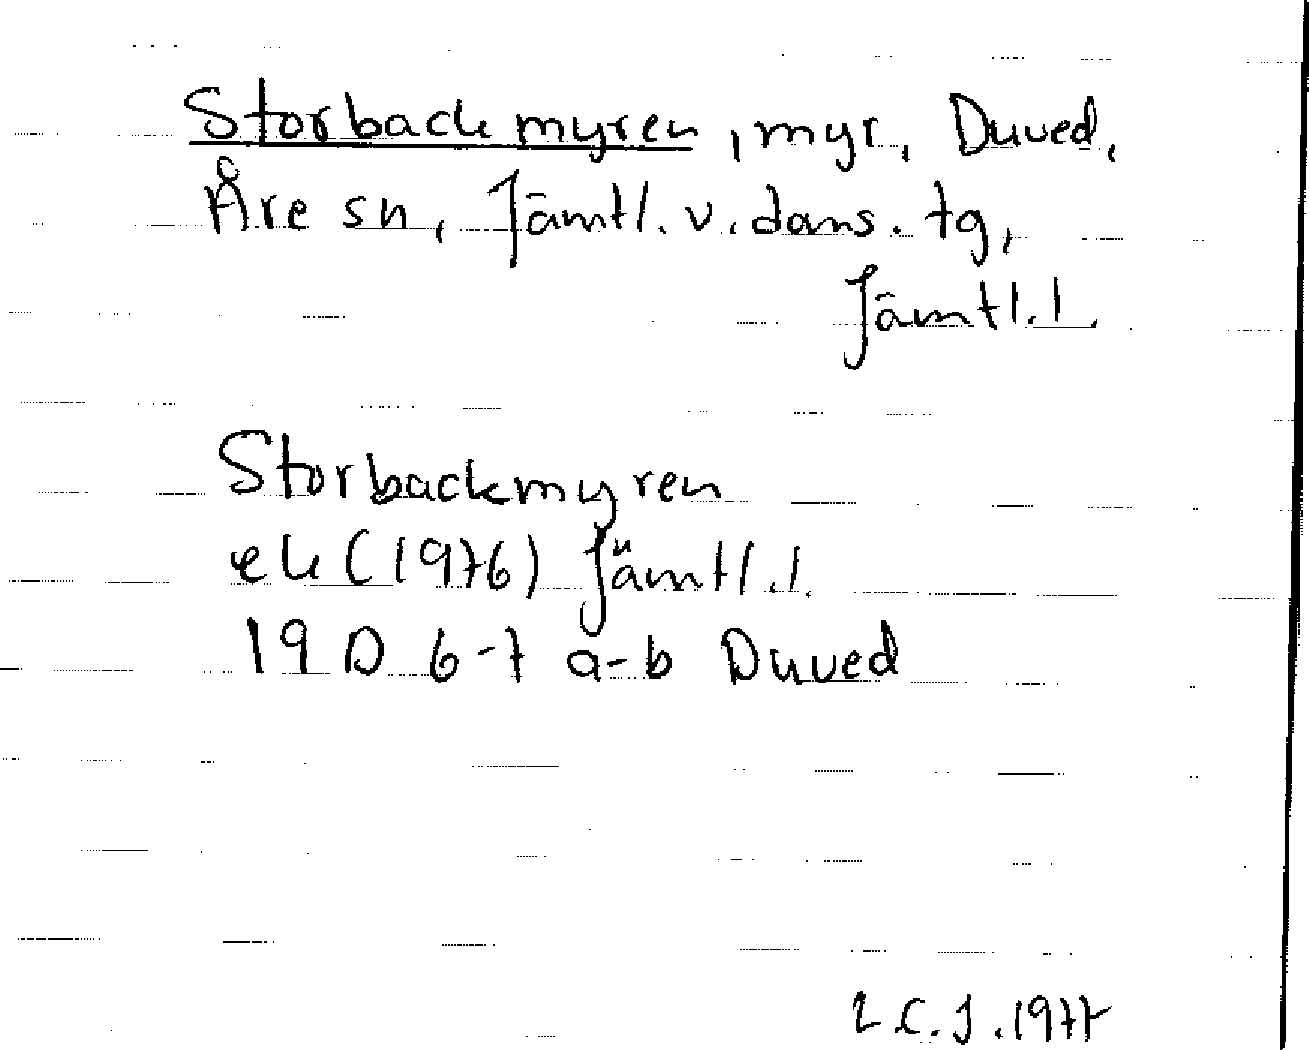 Storbackmyren, myr, Duved,
Åre sn, Jämtl. v. doms. tg,
Jämtl. l.
Storbackmyren
ek (1976) Jämtl. l.
19 D 6-7 a-b Duved
L.C.J. 1977